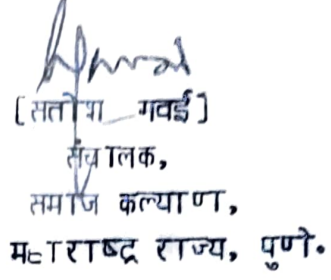 [सतीश गवई]
संचालक,
समाज कल्याण,
महाराष्ट्र राज्य, पुणे.